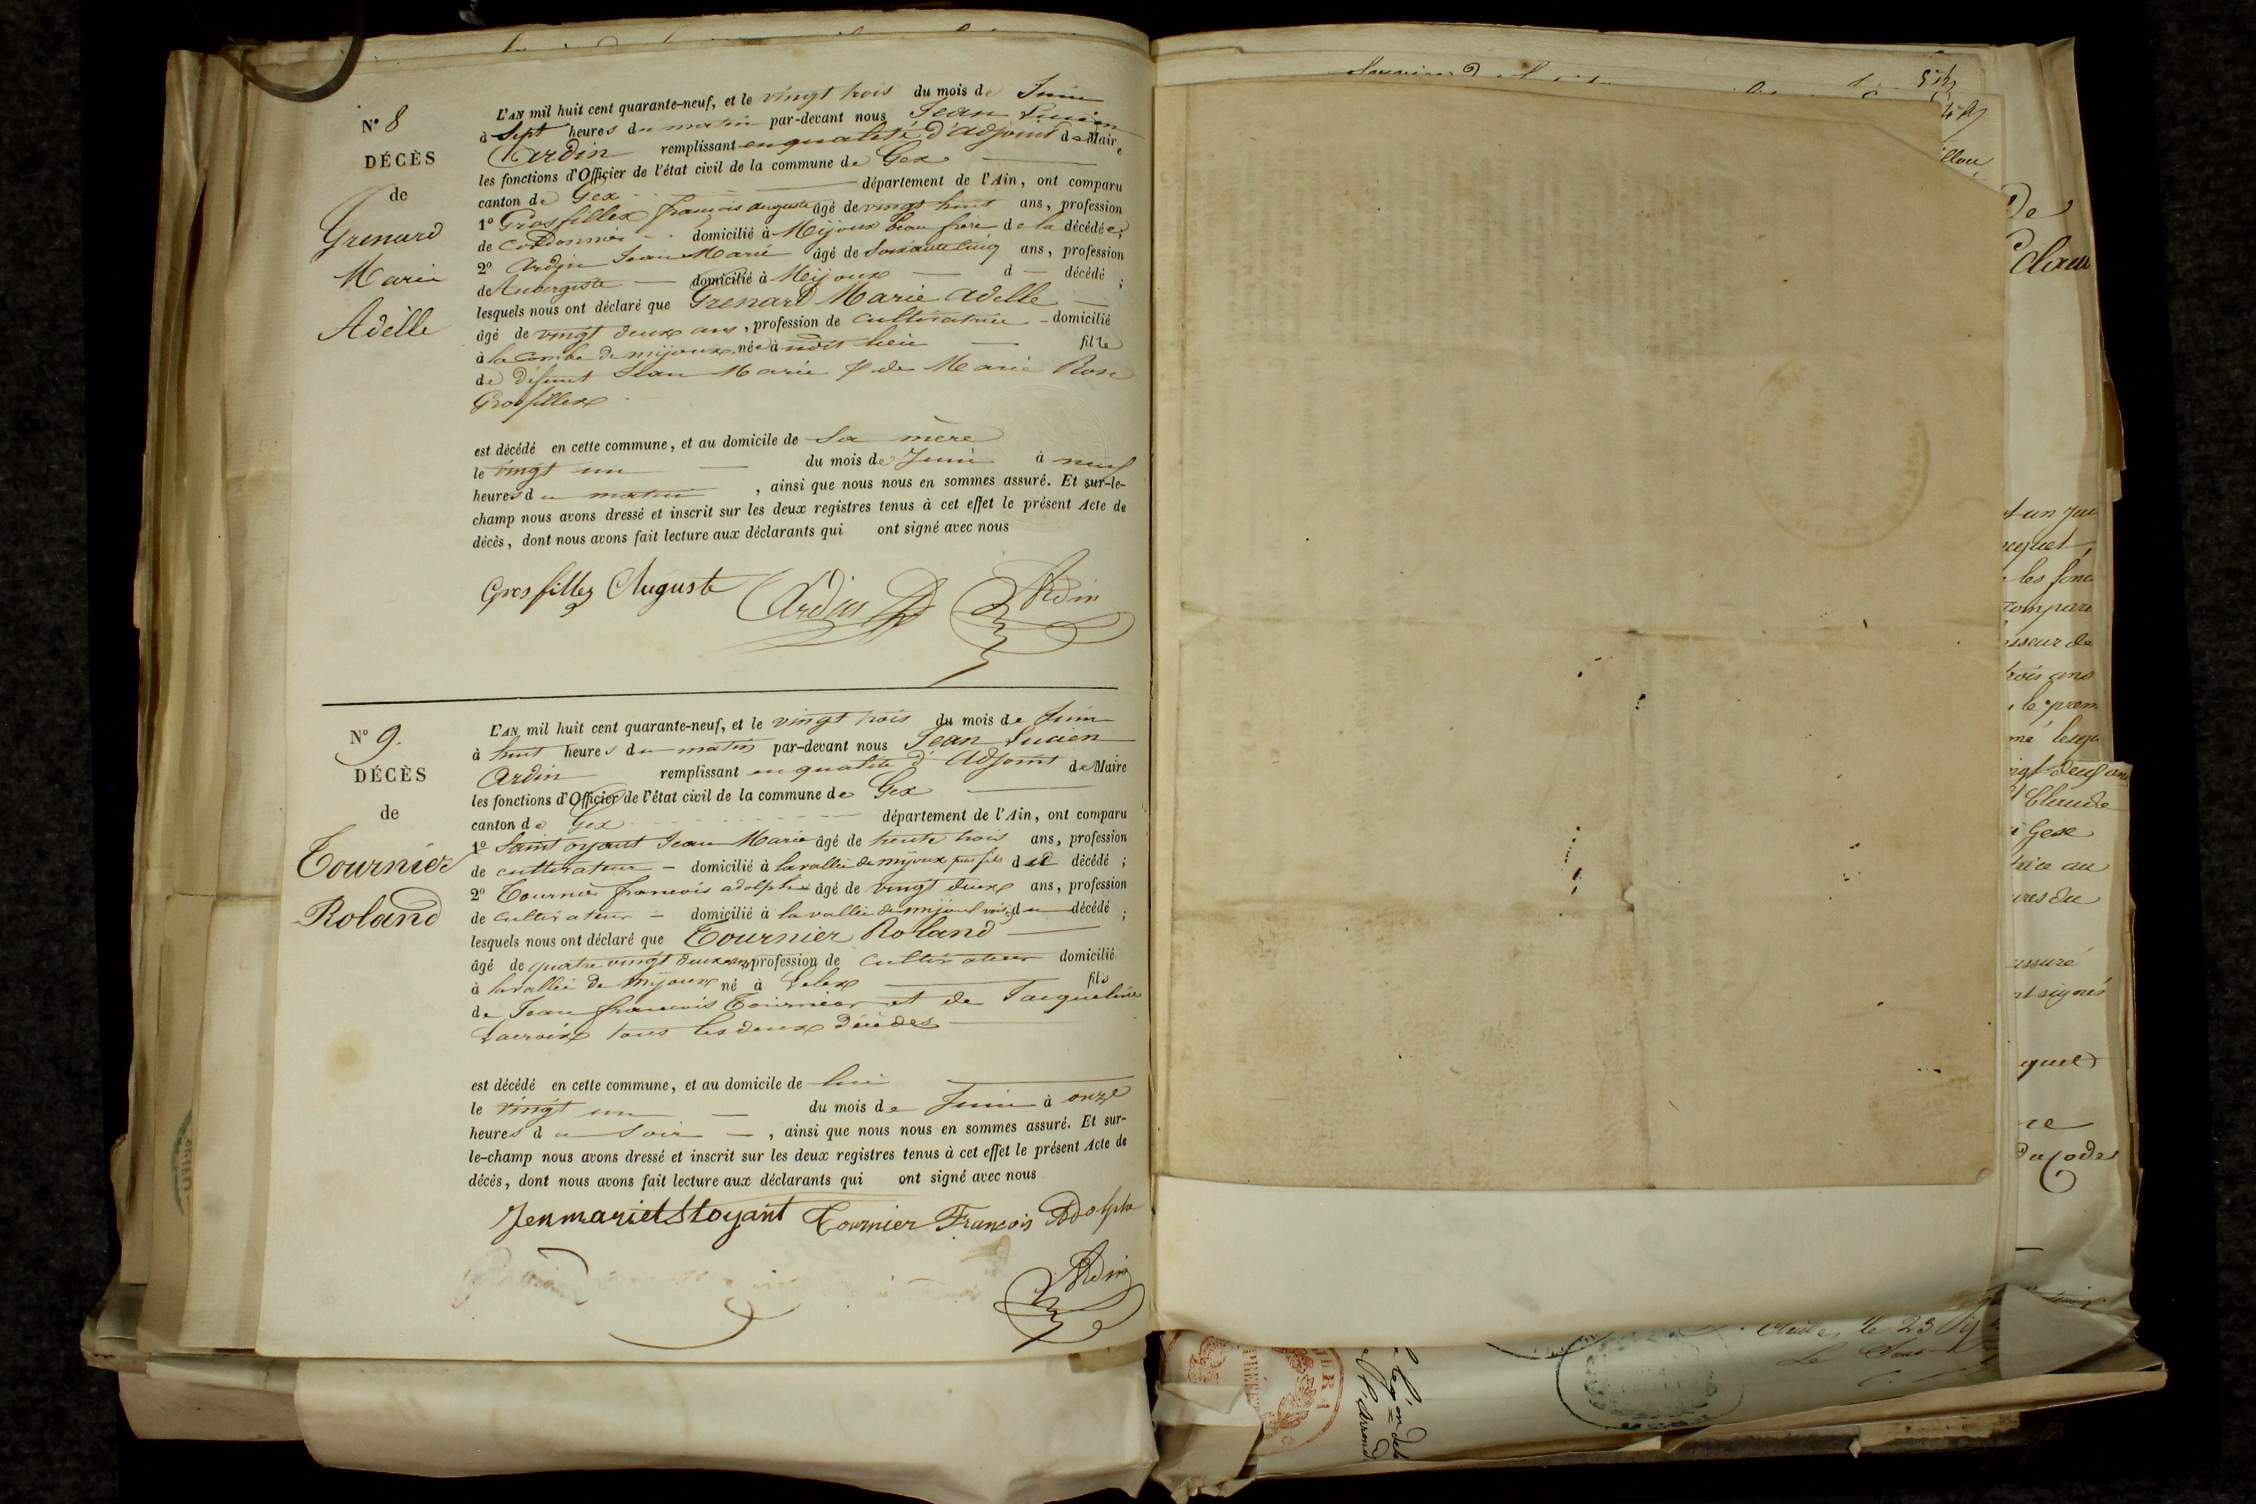 N° 8
DÉCÈS
de
Grenard
Marie
Adèlle
L'AN mil huit cent quarante-neuf, et le vingt trois du mois de Juin
à Sept heures du matin par-devant nous Jean Lucien
Ardin remplissant en qualité d'adjoint de Maire
les fonctions d'Officier de l'état civil de la commune de Gex
canton de Gex département de l'Ain, ont comparu
1° Grosfillex françois auguste âgé de vingt huit ans, profession
de Cordonnier domicilié à Mijoux beau frère de la décédée;
2° Ardin Jean Marie âgé de Soixante cinq ans, profession
de Aubergiste domicilié à Mijoux d décédé ;
lesquels nous ont déclaré que Grenard Marie Adelle
âgé de vingt deux ans, profession de cultivatrice domicilié
à la Combe de mijoux née à lieu fille
de défunt Jean Marie & de Marie Rose
Grosfillex
est décédé en cette commune, et au domicile de Sa mère
le vingt un du mois de Juin à neuf
heures du matin , ainsi que nous nous en sommes assuré. Et sur-le-
champ nous avons dressé et inscrit sur les deux registres tenus à cet effet le présent Acte de
décès, dont nous avons fait lecture aux déclarants qui ont signé avec nous
Grosfillex Auguste Ardin Ardin
N° 9.
DÉCÈS
de
Tournier
Roland
L'AN mil huit cent quarante-neuf, et le vingt trois du mois de Juin
à huit heures du matin par-devant nous Jean Lucien
Ardin remplissant en qualité d'Adjoint de Maire
les fonctions d'Officier de l'état civil de la commune de Gex
canton de Gex département de l'Ain, ont comparu
1° Saint oyant Jean Marie âgé de trente trois ans, profession
de cultivateur domicilié à la vallée de mijoux fils d décédé ;
2° Tournier francois adolphe âgé de vingt deux ans, profession
de cultivateur domicilié à la vallée de mijoux du décédé ;
lesquels nous ont déclaré que Tournier Roland
âgé de quatre vingt deux ans profession de cultivateur domicilié
à la vallée de Mijoux né à Lelex fils
de Jean francois Tournier et de Jacqueline
Lacroix tous les deux décédés
est décédé en cette commune, et au domicile de lui
le vingt un du mois de Juin à onze
heures du soir , ainsi que nous nous en sommes assuré. Et sur-
le-champ nous avons dressé et inscrit sur les deux registres tenus à cet effet le présent Acte de
décès, dont nous avons fait lecture aux déclarants qui ont signé avec nous
Jenmariet Stoyant Tournier François Adolphe
Ardin